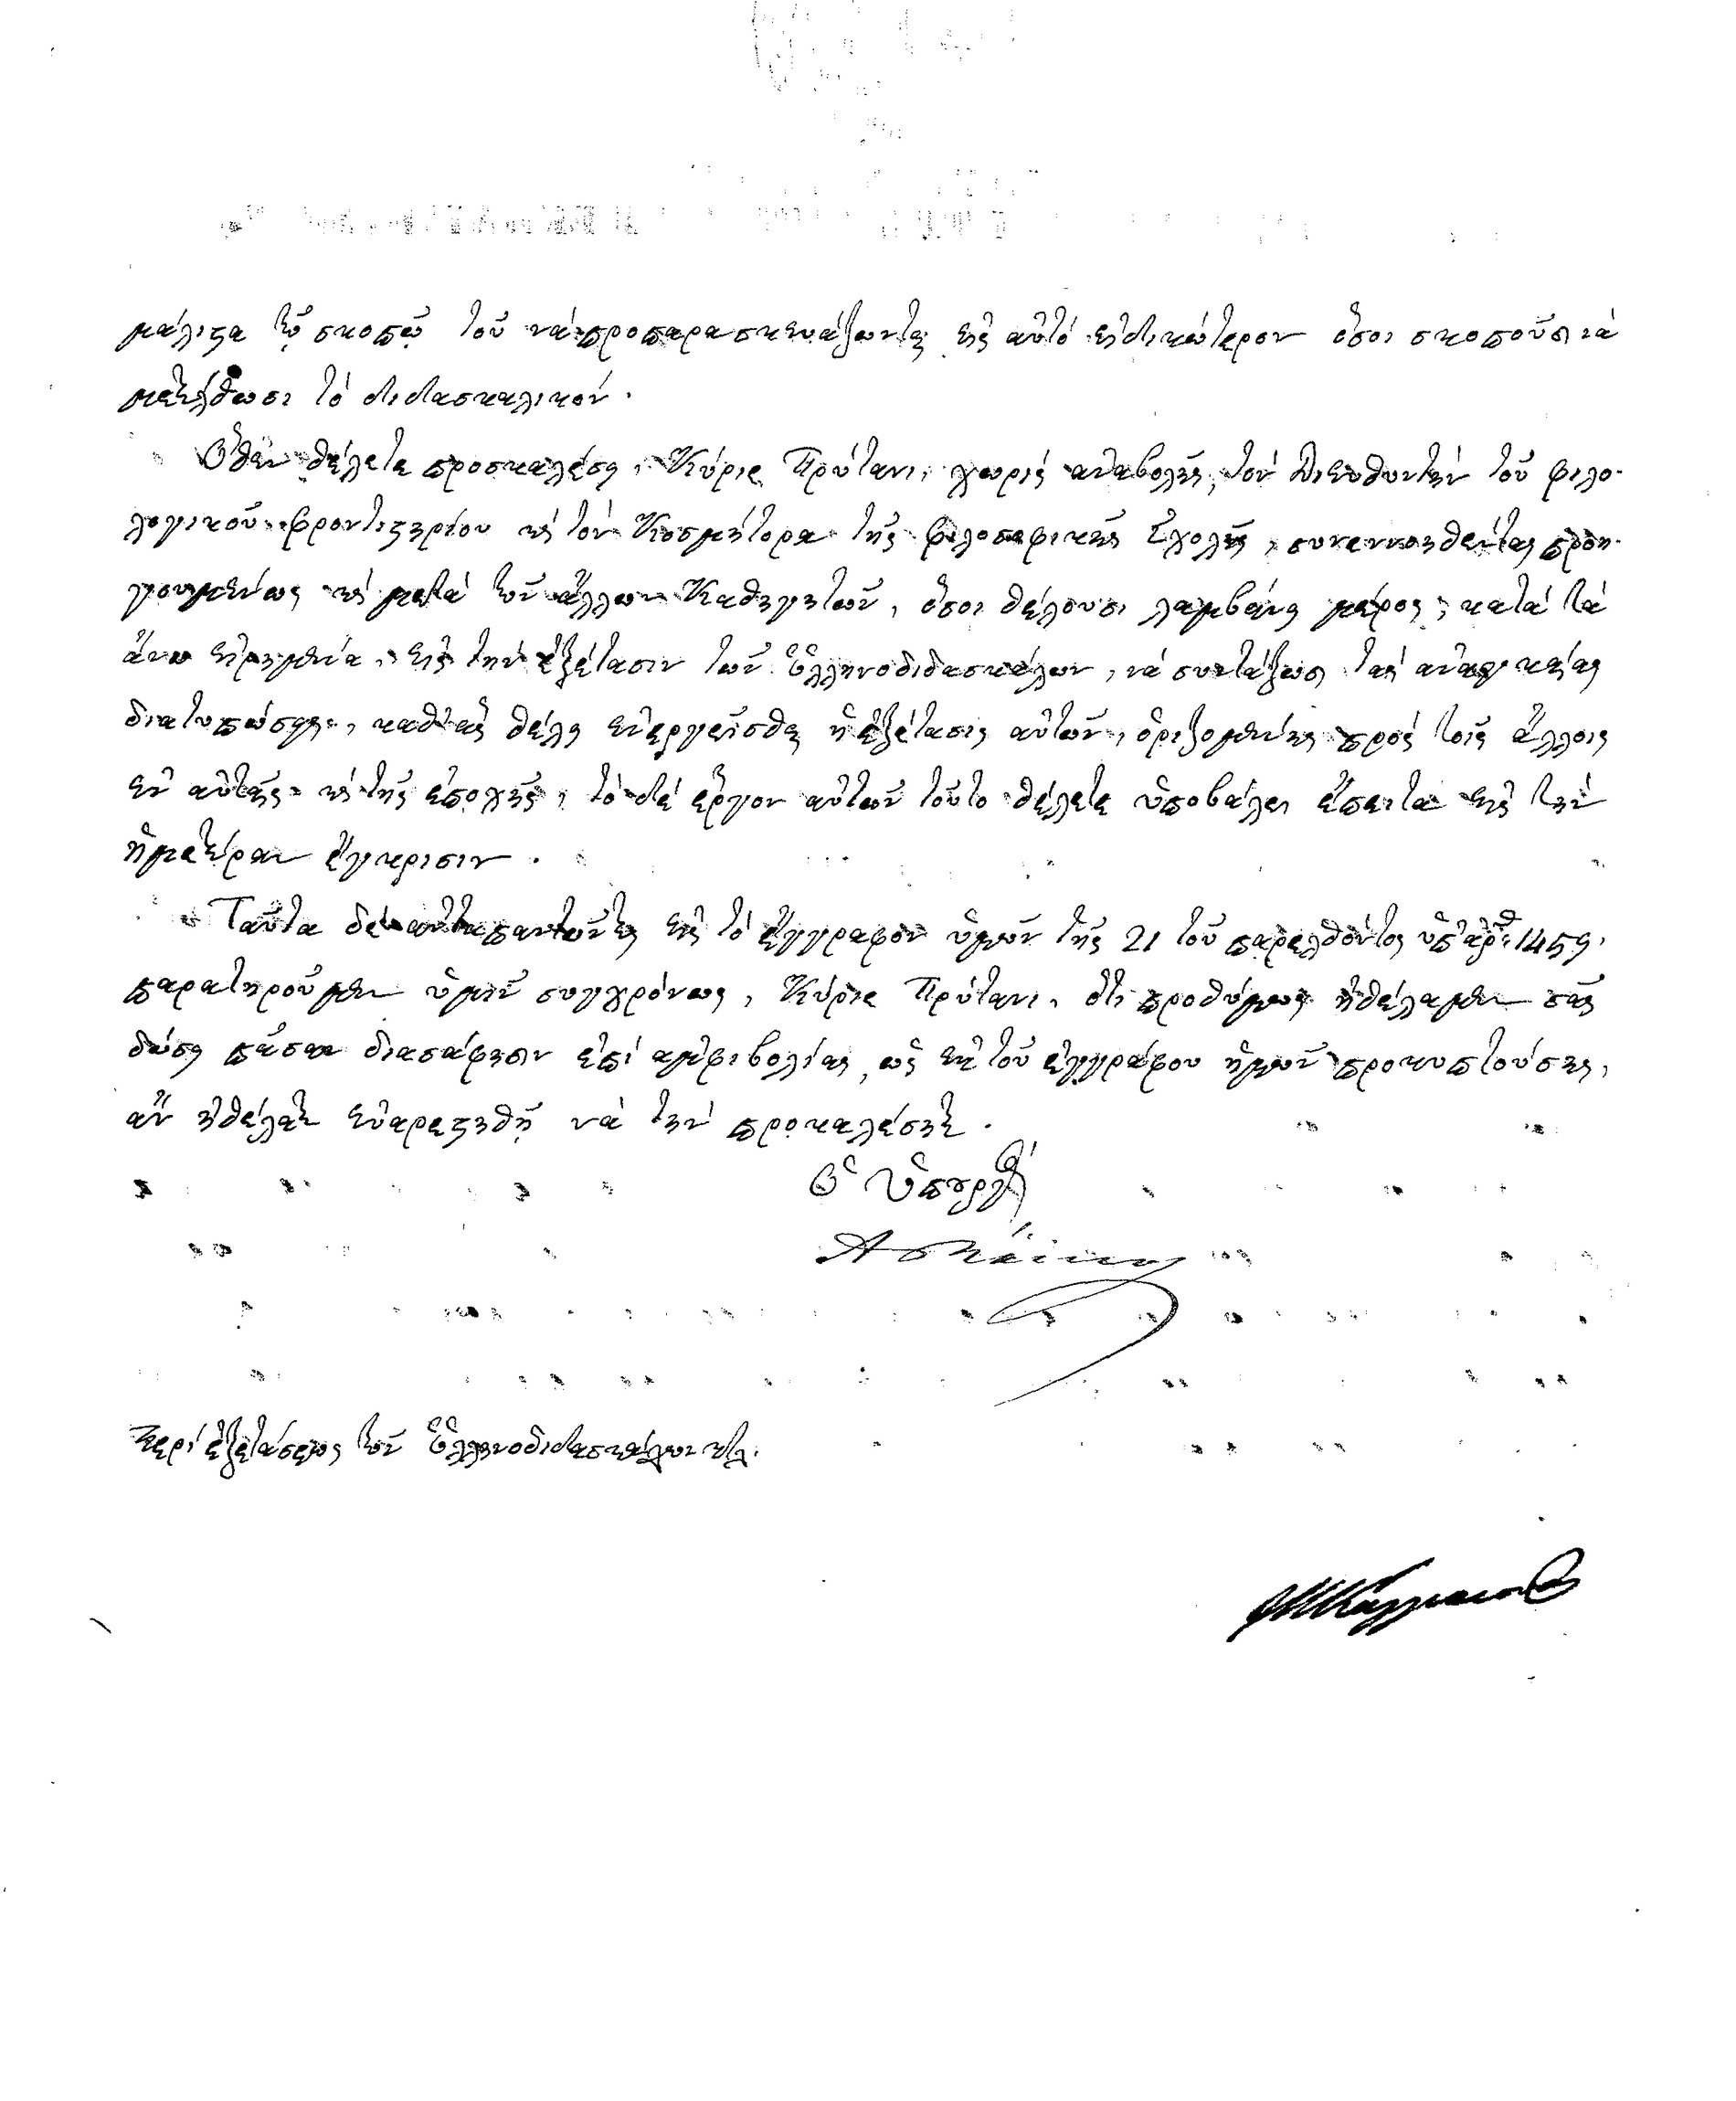 μάλιστα τῷ σκοπῷ τοῦ νὰ προπαρασκευάζωνται εἰς αὐτὸ εἰδικώτερον ὅσοι σκοποῦσι νὰ
μετέλθωσι τὸ διδασκαλικόν.
Ὅθεν θέλετε προσκαλέσει, Κύριε Πρύτανι, χωρὶς ἀναβολῆς, τὸν Διευθυντὴν τοῦ φιλο-
λογικοῦ φροντιστηρίου καὶ τὸν Κοσμήτορα τῆς φιλοσοφικῆς Σχολῆς, συνεννοηθέντας προη-
γουμένως καὶ μετὰ τῶν ἄλλων Καθηγητῶν, ὅσοι θέλουσι λαμβάνει μέρος, κατὰ τὰ
ἄνω εἰρημένα, εἰς τὴν ἐξέτασιν τῶν Ἑλληνοδιδασκάλων, νὰ συντάξωσι τὰς ἀναγκαίας
διατυπώσεις, καθ' ἃς θέλει ἐνεργεῖσθαι ἡ ἐξέτασις αὐτῶν, ὁριζομένης πρὸς τοῖς ἄλλοις
ἐν αὐταῖς καὶ τῆς ἐποχῆς, τὸ δὲ ἔργον αὐτῶν τοῦτο θέλετε ὑποβάλει ἔπειτα εἰς τὴν
ἡμετέραν ἔγκρισιν.
Ταῦτα δὲ ἀνταπαντῶντες εἰς τὸ ἔγγραφον ὑμῶν τῆς 21 τοῦ παρελθόντος ὑπ' ἀρ. 1459,
παρατηροῦμεν ὑμῖν συγχρόνως, Κύριε Πρύτανι, ὅτι προθύμως ἠθέλαμεν σᾶς
δώσει πᾶσαν διασάφησιν ἐπὶ ἀμφιβολίας, ὡς ἐκ τοῦ ἐγγράφου ἡμῶν προκυπτούσης,
ἂν ἠθέλατε εὐαρεστηθῆ νὰ τὴν προκαλέσετε.
Ὁ Ὑπουργὸς
Περὶ ἐξετάσεως τῶν Ἑλληνοδιδασκάλων κτλ.